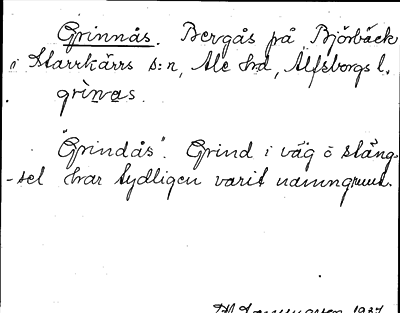 Grinnås. Bergås på Björbäck
i Starrkärrs s:n, Ale hrd, Älfsborgs l.
grìnas.
"Grindås". Grind i väg o stäng-
-sel har tydligen varit namngrund.
1937